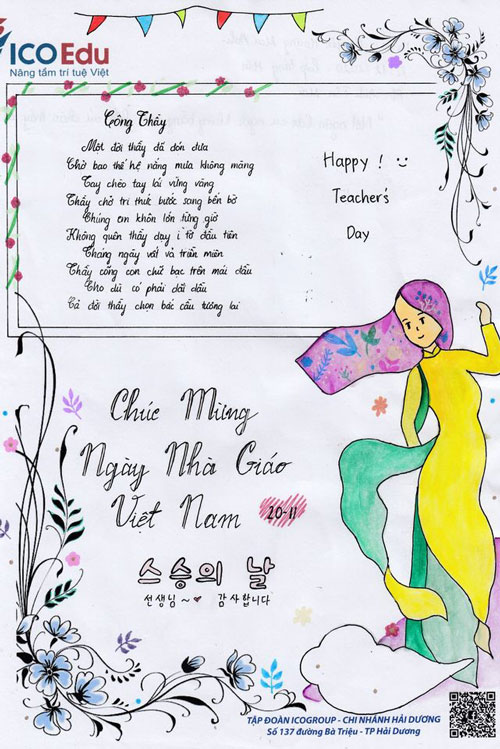 ICOEdu
Nâng tầm trí tuệ Việt
Công Thầy
Một đời thầy đã đón đưa
Chở bao thế hệ nắng mưa không màng
Tay chèo tay lái vững vàng
Thầy chở tri thức bước sang bến bờ
Chúng em khôn lớn từng giờ
Không quên thầy dạy i tờ đầu tiên
Tháng ngày vất vả triền miên
Thầy cõng con chữ bạc trên mái đầu
Cho dù có phải dãi dầu
Cả đời thầy chọn bắc cầu tương lai
Happy !
Teacher's
Day
Chúc Mừng
Ngày Nhà Giáo
Việt Nam 20-11
스승의 날
선생님 ~ ♥ 감사합니다
TẬP ĐOÀN ICOGROUP - CHI NHÁNH HẢI DƯƠNG
Số 137 đường Bà Triệu - TP Hải Dương